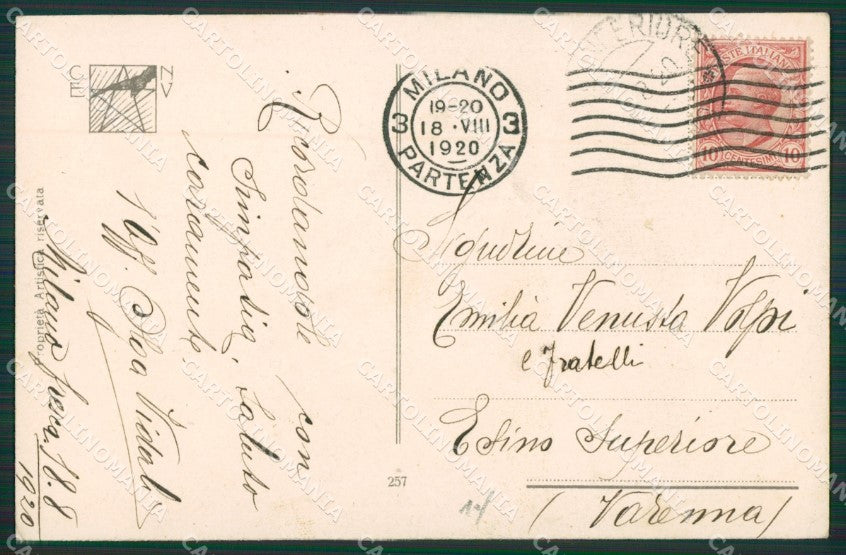 Ricordandole con
simpatia, saluto
caramente.
l'Aff. Ida Vidal
Milano 18.8
1920
Proprietà Artistica riservata
MILANO 3 PARTENZA 3
19-20
18 · VIII
1920
TERIORE
POSTE ITALIANE
10 CENTESIMI 10
Emilia Venusta Volpi
e fratelli
Esino Superiore
(Varenna)
257
CARTOLINOMANIA